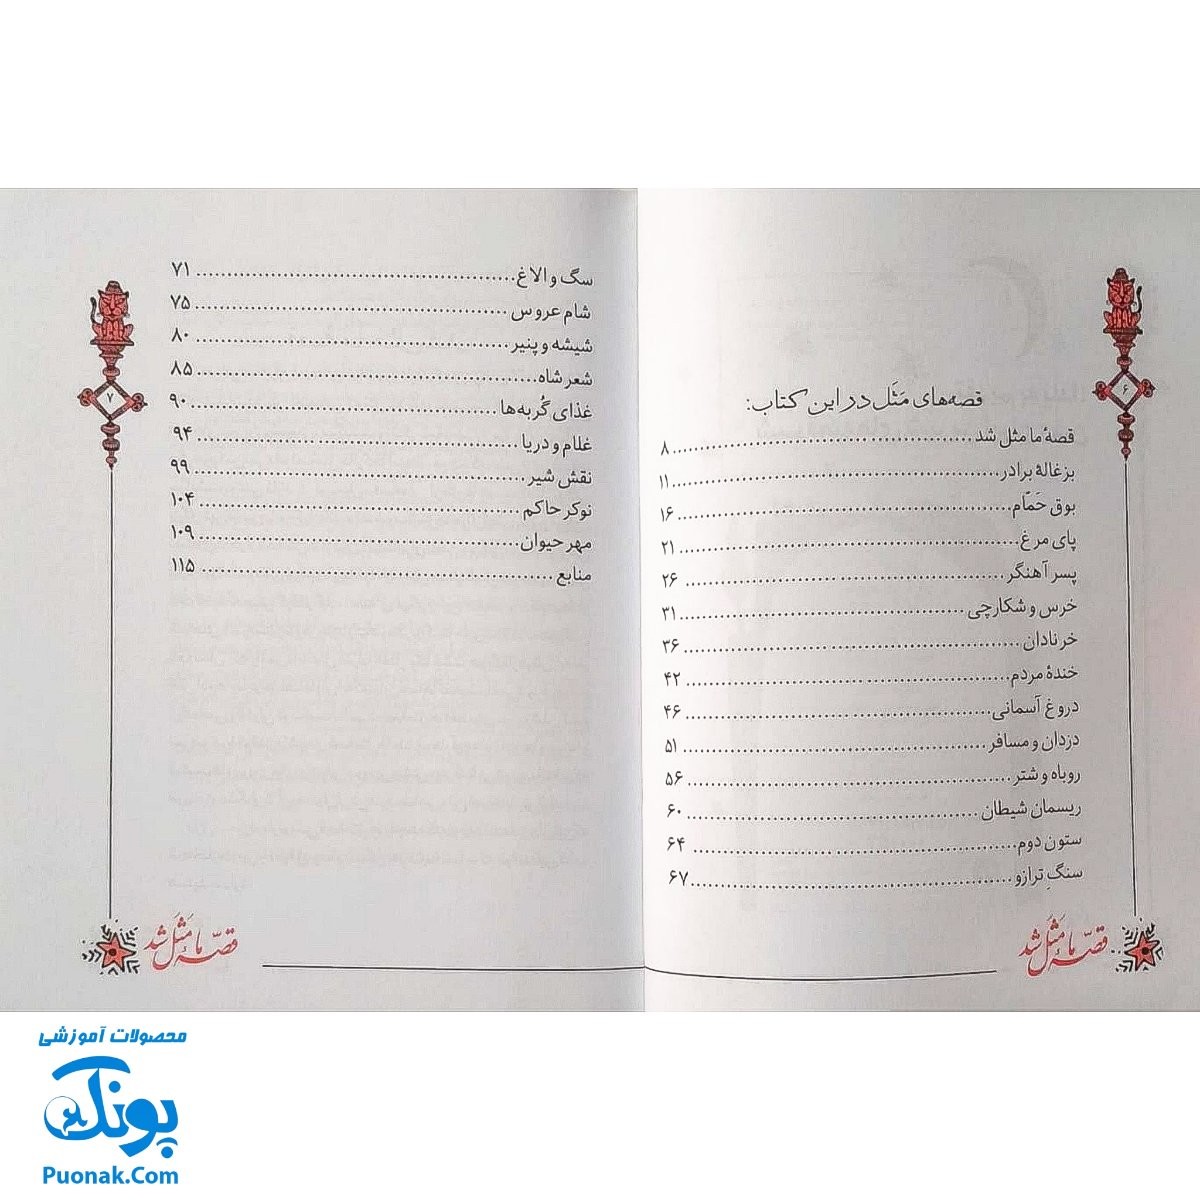 ۶
قصه‌های مَثَل در این کتاب:
قصهٔ ما مثل شد.......... ۸
بزغالهٔ برادر.......... ۱۱
بوق حَمّام.......... ۱۶
پای مرغ.......... ۲۱
پسر آهنگر.......... ۲۶
خرس و شکارچی.......... ۳۱
خر نادان.......... ۳۶
خندهٔ مردم.......... ۴۲
دروغ آسمانی.......... ۴۶
دزدان و مسافر.......... ۵۱
روباه و شتر.......... ۵۶
ریسمان شیطان.......... ۶۰
ستون دوم.......... ۶۴
سنگِ ترازو.......... ۶۷
قصّهٔ ما مَثَل شد
۷
سگ و الاغ.......... ۷۱
شام عروس.......... ۷۵
شیشه و پنیر.......... ۸۰
شعر شاه.......... ۸۵
غذای گُربه‌ها.......... ۹۰
غلام و دریا.......... ۹۴
نقش شیر.......... ۹۹
نوکر حاکم.......... ۱۰۴
مهر حیوان.......... ۱۰۹
منابع.......... ۱۱۵
قصّهٔ ما مَثَل شد
محصولات آموزشی
پونک
Puonak.Com